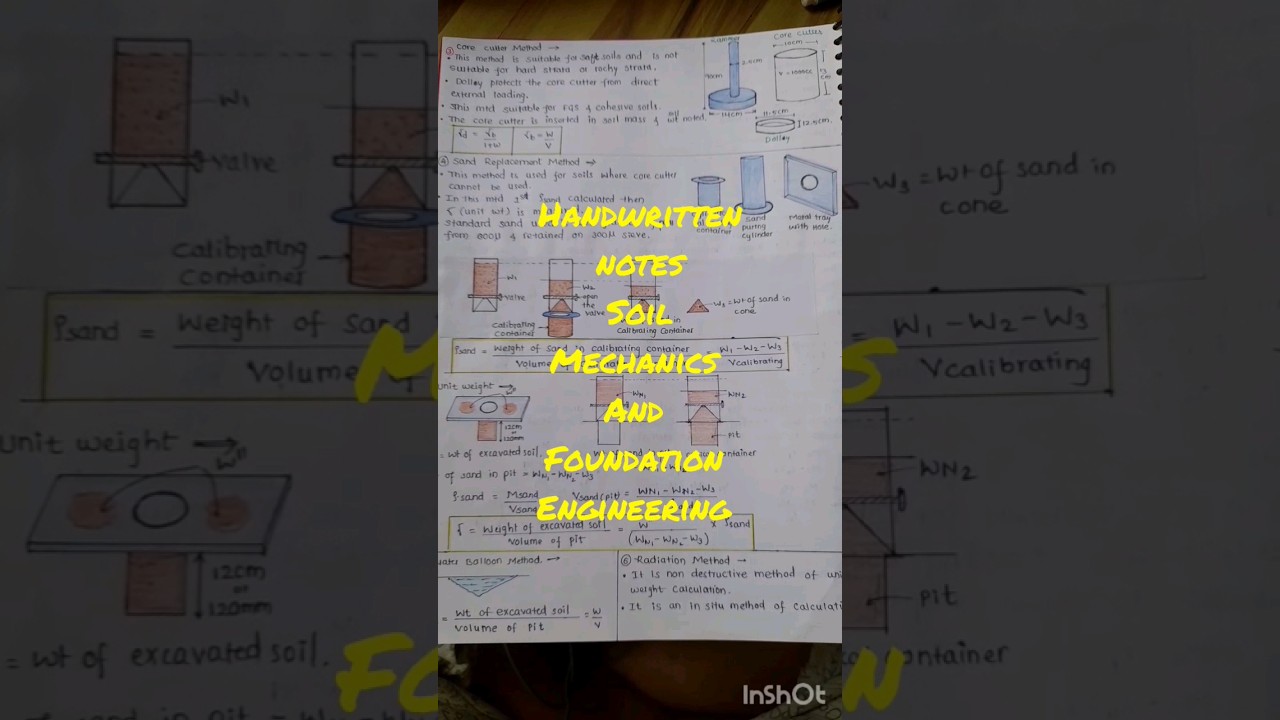 ③ Core cutter Method →
• This method is suitable for soft soils and is not
suitable for hard strata or rocky strata.
• Dolley protects the core cutter from direct
external loading.
• This mtd suitable for FGS & cohesive soils.
• The core cutter is inserted in soil mass & soil wt noted.
14cm
2.5cm
Core cutter
10cm
V = 1000cc
11.5cm
12.5cm.
Dolley
④ Sand Replacement Method →
• This method is used for soils where core cutter
cannot be used.
• In this mtd 1st ρsand calculated then
(unit wt) is
Standard sand
from 600μ & retained on 300μ sieve.
container
Sand
puring
cylinder
Metal tray
with hose.
Handwritten
notes
Soil
Mechanics
And
Foundation
Engineering
W1
valve
W2
open
the
valve
Calibrating
Container
in
Calibrating Container
W3 = wt of sand in
cone
ρsand = Weight of sand in calibrating container / Volume = W1 - W2 - W3 / Vcalibrating
unit weight →
12cm
or
120mm
WN1
WN2
Pit
= wt of excavated soil.
container
of sand in pit = WN1 - WN2 - W3
ρsand = Msand / Vsand
Vsand(pit) = WN1 - WN2 - W3
= Weight of excavated soil / volume of pit = W / (WN1 - WN2 - W3) × ρsand
water Balloon Method. →
= wt of excavated soil / volume of pit = W / V
⑥ Radiation Method →
• It is non destructive method of uni
weight calculation.
• It is an in situ method of calculati
InShOt